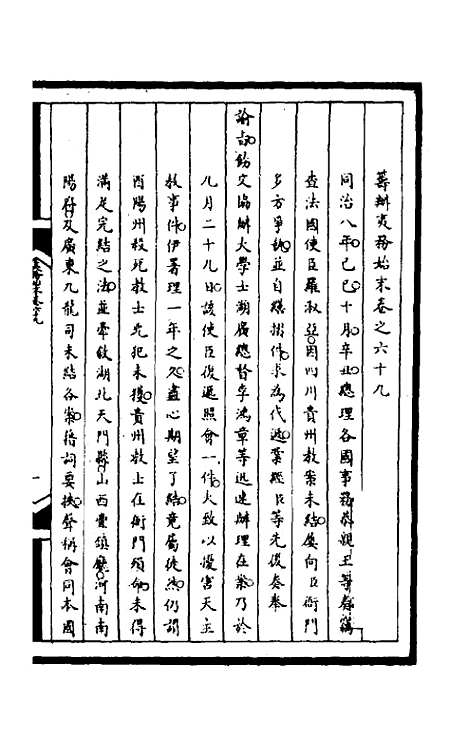 籌辦夷務始末卷之六十九
同治八年己巳十月辛丑總理各國事務恭親王等奏竊
查法國使臣羅淑亞因四川貴州教案未結屢向臣衙門
多方爭執並自繕摺件求為代遞業經臣等先後奏奉
諭旨飭交協辦大學士湖廣總督李鴻章等迅速辦理在案乃於
九月二十九日該使臣復遞照會一件大致以擾害天主
教事件伊署理一年之久盡心期望了結竟屬徒然仍謂
酉陽州殺死教士兇犯未獲貴州教士在衙門殞命未得
滿足完結之法並牽敘湖北天門縣山西豐鎮廳河南南
陽府及廣東九龍司未結各案藉詞要挾聲稱會同本國